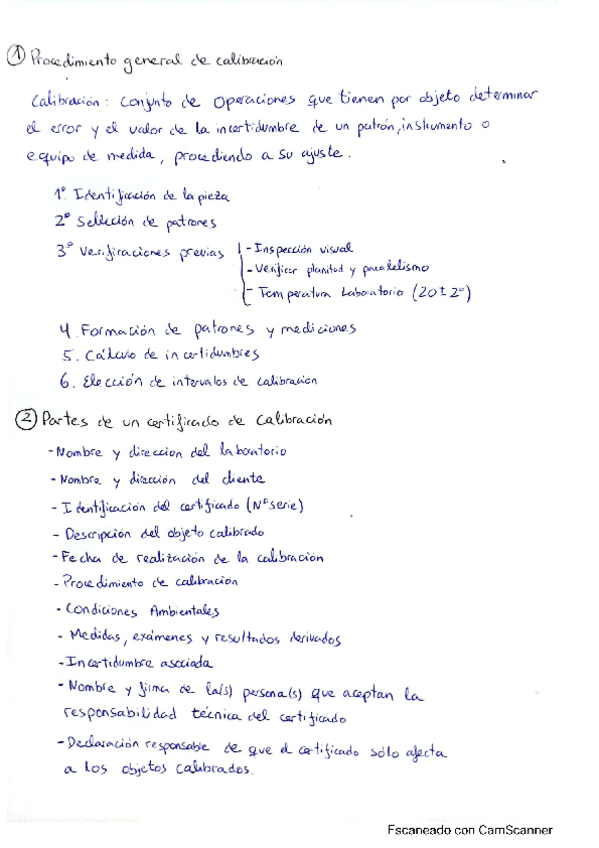 ① Procedimiento general de calibración
Calibración: Conjunto de Operaciones que tienen por objeto determinar
el error y el valor de la incertidumbre de un patrón, instrumento o
equipo de medida, procediendo a su ajuste.
1º Identificación de la pieza
2º Selección de patrones
3º Verificaciones previas
- Inspección visual
- Verificar planitud y paralelismo
- Temperatura Laboratorio (20 ± 2º)
4. Formación de patrones y mediciones
5. Cálculo de incertidumbres
6. Elección de intervalos de calibración
② Partes de un certificado de calibración
- Nombre y direccion del laboratorio
- Nombre y dirección del cliente
- Identificación del certificado (Nº serie)
- Descripción del objeto calibrado
- Fecha de realización de la calibración
- Procedimiento de calibración
- Condiciones Ambientales
- Medidas, exámenes y resultados derivados
- Incertidumbre asociada
- Nombre y firma de la(s) persona(s) que aceptan la
responsabilidad técnica del certificado
- Declaración responsable de que el certificado sólo afecta
a los objetos calibrados.
Escaneado con CamScanner